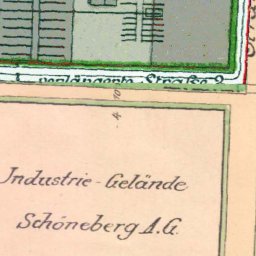 verlängerte Straße 2
Industrie-Gelände
Schöneberg A.G.